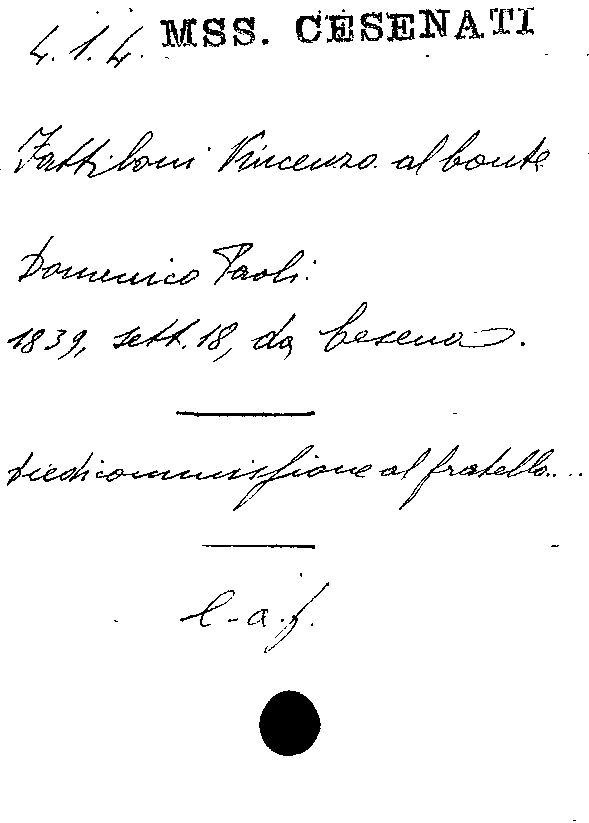 4.1.4. MSS. CESENATI
Fattiboni Vincenzo al Conte
Domenico Paoli.
1839, sett. 18, da Cesena.
Diedi commissione al fratello...
l-a.f.